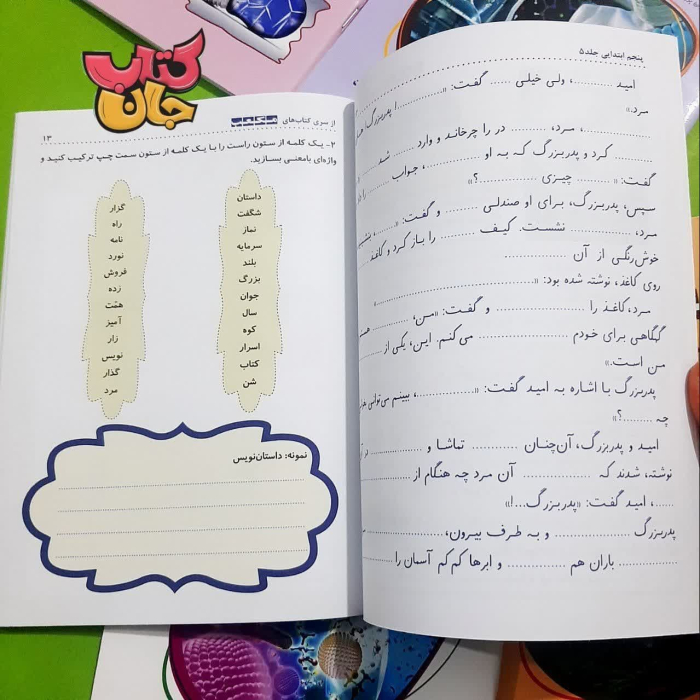 کتاب
جان
پنجم ابتدایی جلد۵
امید ..........، ولی خیلی ...... گفت: «............. پدربزرگ!
مرد.»
....................، مرد، .......... در را چرخاند و وارد ........ شد
.............. کرد و پدربزرگ که به او ............، جواب ........
گفت: «......... چیزی ..........؟»
سپس، پدربزرگ، برای او صندلی ........ و گفت: «.......،
مرد، ................ نشست. کیف ......... را باز کرد و کاغذ
خوش‌رنگی از آن .................
روی کاغذ، نوشته شده بود: «...........................»
مرد، کاغذ را ................. و گفت: «من، ...........
گهگاهی برای خودم ................. می‌کنم. این، یکی از ......
من است.»
پدربزرگ با اشاره به امید گفت: «............، ببینم می‌توانی
چه ........؟»
امید و پدربزرگ، آن‌چنان ............ تماشا و ............
نوشته، شدند که ............ آن مرد چه هنگام از ............
......، امید گفت: «پدربزرگ...!»
پدربزرگ ................ و به طرف بیرون، ................
................ باران هم ............ و ابرها کم‌کم آسمان را
از سری کتاب‌های
۱۳
۲- یک کلمه از ستون راست را با یک کلمه از ستون سمت چپ ترکیب کنید و
واژه‌ای بامعنی بسازید.
داستان
شگفت
نماز
سرمایه
بلند
بزرگ
جوان
سال
کوه
اسرار
کتاب
شن
گزار
راه
نامه
نورد
فروش
زده
همّت
آمیز
زار
نویس
گذار
مرد
نمونه: داستان‌نویس